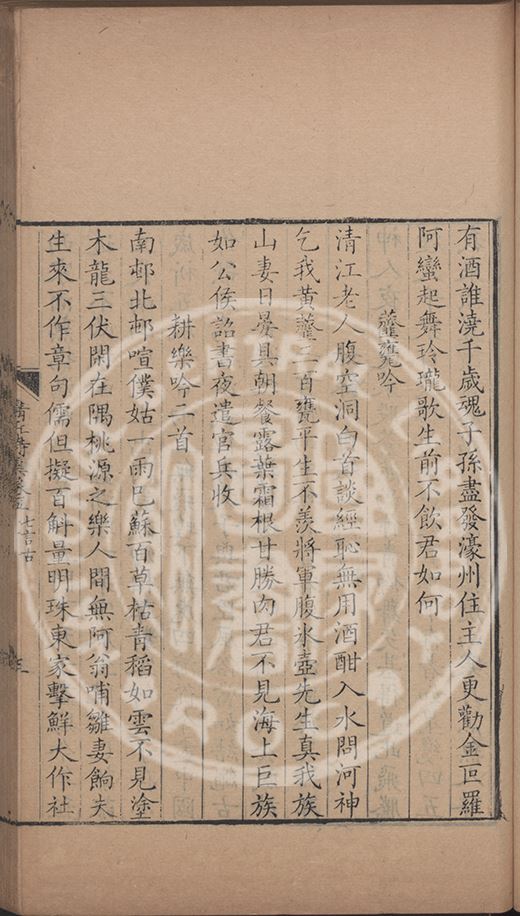 有酒誰澆千歲魂子孫盡發濠州住主人更勸金叵羅
阿蠻起舞玲瓏歌生前不飲君如何
虀甕吟
清江老人腹空洞白首談經恥無用酒酣入水問河神
乞我黃虀三百甕平生不羨將軍腹氷壺先生真我族
山妻日晏具朝餐露葉霜根甘勝肉君不見海上巨族
如公侯詔書夜遣官兵收
耕樂吟二首
南邨北邨喧僕姑十雨巳蘇百草枯青稻如雲不見塗
木龍三伏閑在隅桃源之樂人間無阿翁哺雛妻餉夫
生來不作章句儒但擬百斛量明珠東家擊鮮大作社
清江詩集卷五 七言古
三